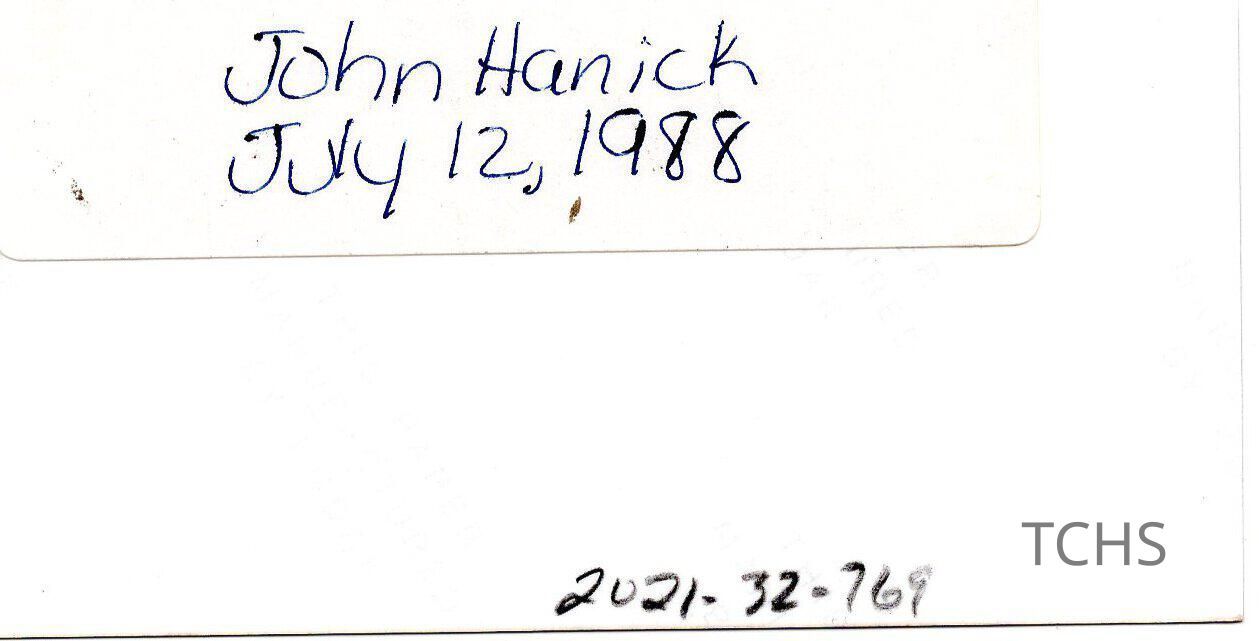 John Hanick
July 12, 1988
TCHS
2021-32-769